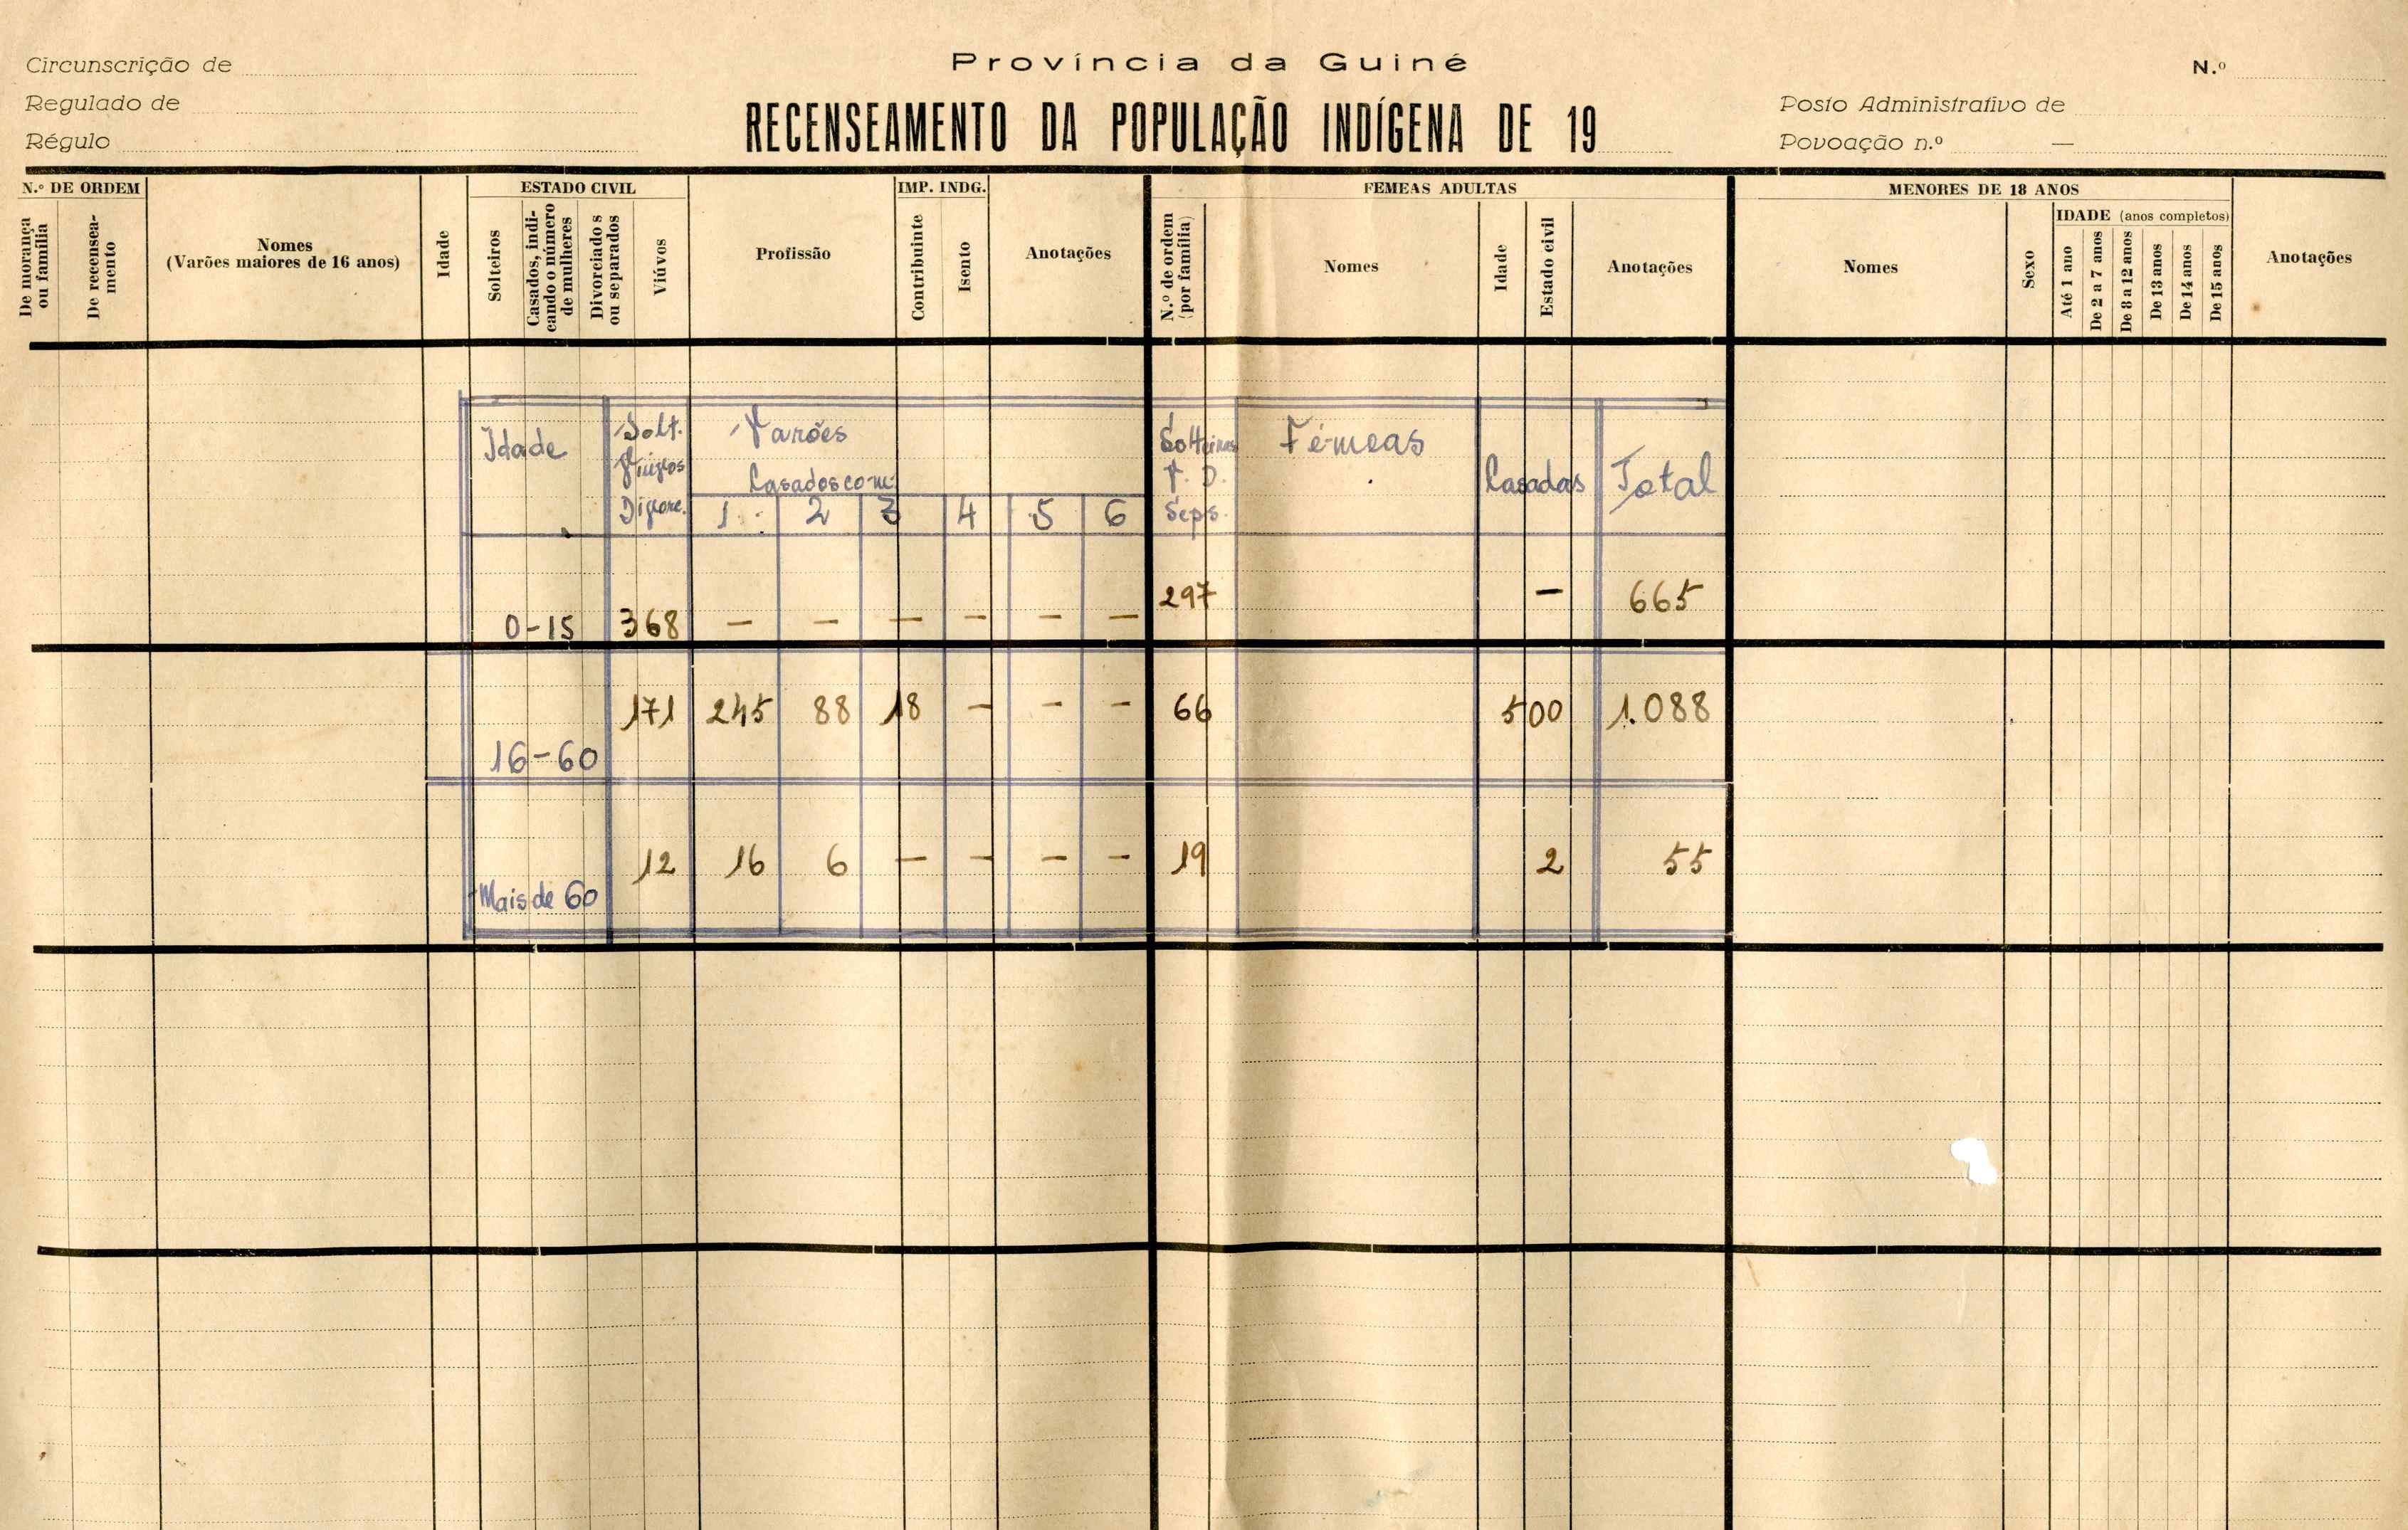 Província da Guiné
Circunscrição de
N.º
Regulado de
RECENSEAMENTO DA POPULAÇÃO INDÍGENA DE 19
Posto Administrativo de
Régulo
Povoação n.º —
N.º DE ORDEM
De morança ou família
De recensea-
mento
Nomes
(Varões maiores de 16 anos)
Idade
ESTADO CIVIL
Solteiros
Casados, indi-
cando o número
de mulheres
Divorciados
ou separados
Viúvos
Profissão
IMP. INDG.
Contribuinte
Isento
Anotações
FEMEAS ADULTAS
N.º de ordem
(por família)
Nomes
Idade
Estado civil
Anotações
MENORES DE 18 ANOS
Nomes
Sexo
IDADE (anos completos)
Até 1 ano
De 2 a 7 anos
De 8 a 12 anos
De 13 anos
De 14 anos
De 15 anos
Anotações
Idade
Solt.
Viúvos
Divorc.
Varões
Casados com
1 2 3 4 5 6
Solteiras
V. D.
Seps.
Fémeas
Casadas
Total
0-15 368 — — — — — — 297 — 665
16-60 171 245 88 18 — — — 66 500 1.088
Mais de 60 12 16 6 — — — — 19 2 55